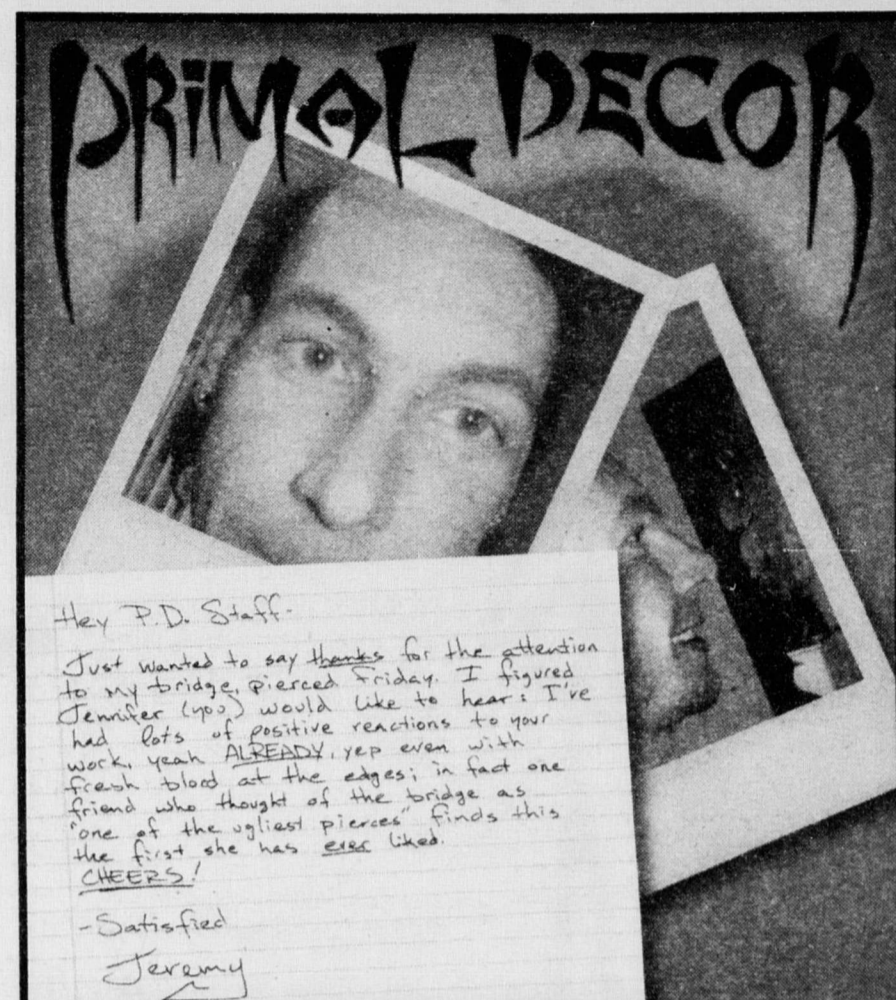 PRIMAL DECOR
Hey P.D. Staff-
Just wanted to say thanks for the attention
to my bridge, pierced Friday. I figured
Jennifer (you) would like to hear: I've
had lots of positive reactions to your
work, yeah ALREADY, yep even with
fresh blood at the edges; in fact one
friend who thought of the bridge as
"one of the ugliest pierces" finds this
the first she has ever liked.
CHEERS!
-Satisfied
Jeremy